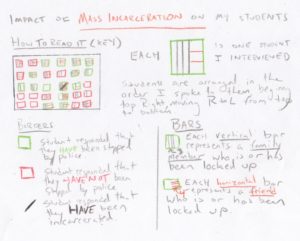 IMPACT OF MASS INCARCERATION ON MY STUDENTS
HOW TO READ IT (KEY)
EACH IS ONE STUDENT I INTERVIEWED
STUDENTS ARE ARRANGED IN THE
ORDER I SPOKE TO THEM beginning
top Right moving R to L from top
to bottom
BORDERS
Student responded that
they HAVE been stopped
by police
Student responded that
they HAVE NOT been
stopped by police
Student responded that
they HAVE been
incarcerated.
BARS
EACH vertical bar
represents a family
member who is or has
been locked up
EACH horizontal bar
represents a friend
who is or has been
locked up